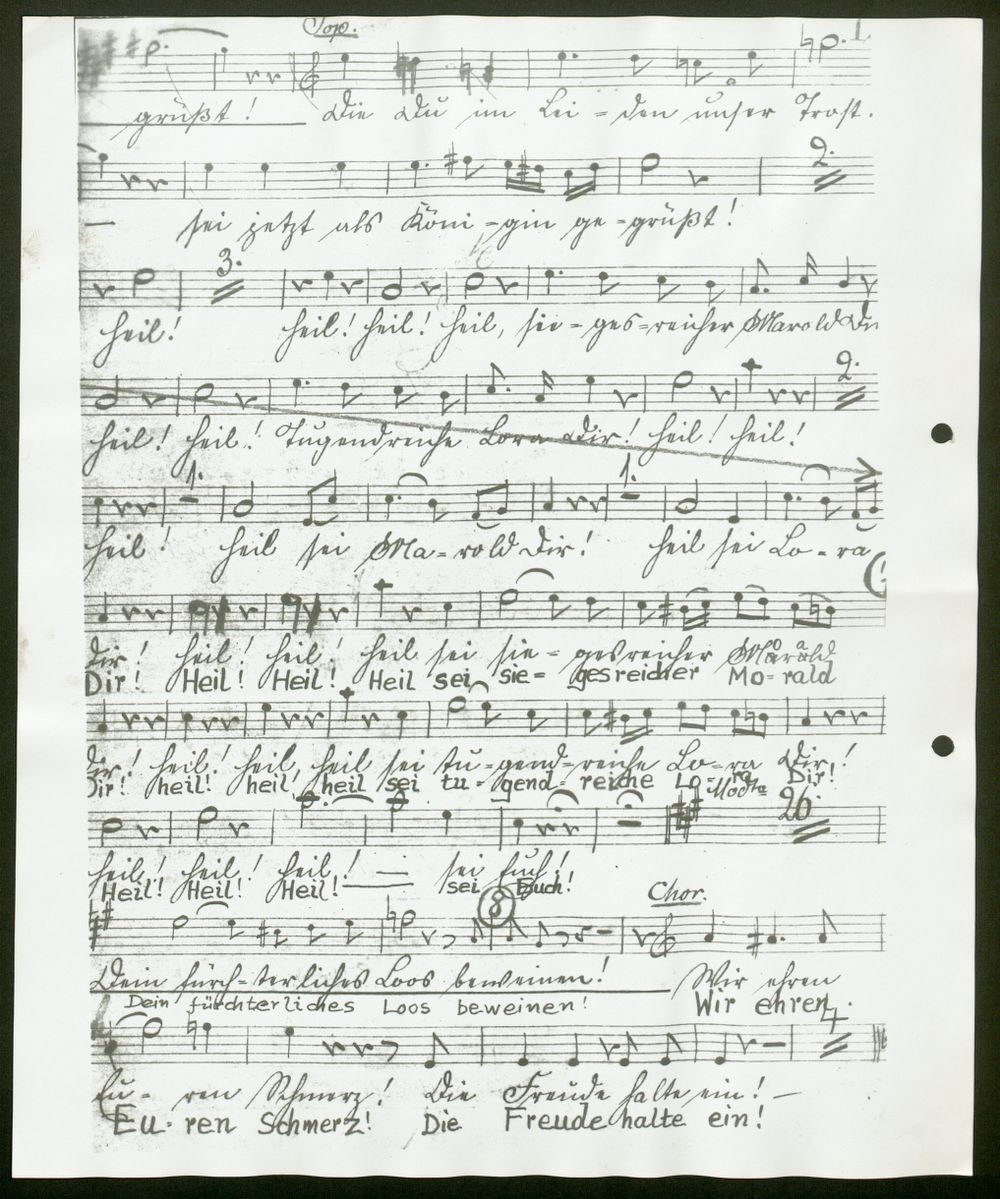 Sop.
grüßt! Die Du im Lei-den unser Trost.
2.
— sei jetzt als Köni-gin ge-grüßt!
3.
heil! heil! heil! heil, sie-ges-reicher Marold Dir
2.
heil! heil! Tugendreiche Lora Dir! heil! heil!
1. 1.
heil! heil sei Ma-rold Dir! heil sei Lo-ra
dir! heil! heil! heil sei sie-gesreicher Marald
Dir! Heil! Heil! Heil sei sie- gesreicher Mo-rald
dir! heil! heil, heil sei tu-gend-reiche Lo-ra Dir!
Dir! heil! heil, heil sei tu-gend-reiche Lo-ra Dir!
26.
heil! heil! heil! — sei Euch!
Heil! Heil! Heil! — sei Euch!
8
Chor.
Dein fürch-terliches Loos beweinen! Wir ehren
Dein fürchterliches Loos beweinen! Wir ehren
4
Eu- ren Schmerz! Die Freude halte ein! —
Eu-ren Schmerz! Die Freude halte ein!